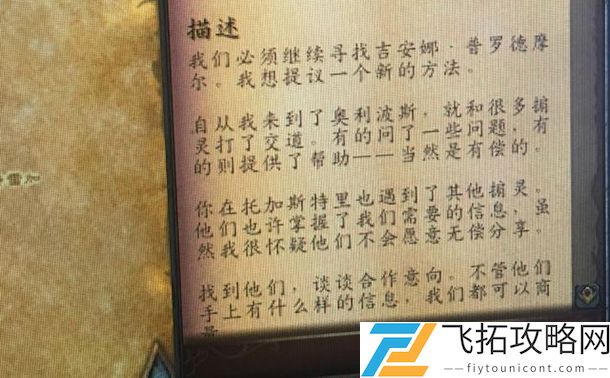 描述
我们必须继续寻找吉安娜·普罗德摩
尔。我想提议一个新的方法。
自从我来到了奥利波斯，就和很多掮
灵打了交道。有的问了一些问题，有
的则提供了帮助——当然是有偿的。
你在托加斯特里也遇到了其他掮灵。
他们也许掌握了我们需要的信息，虽
然我很怀疑他们不会愿意无偿分享。
找到他们，谈谈合作意向。不管他们
手上有什么样的信息，我们都可以商
雷加
飞拓攻略网
fiytounicont.com